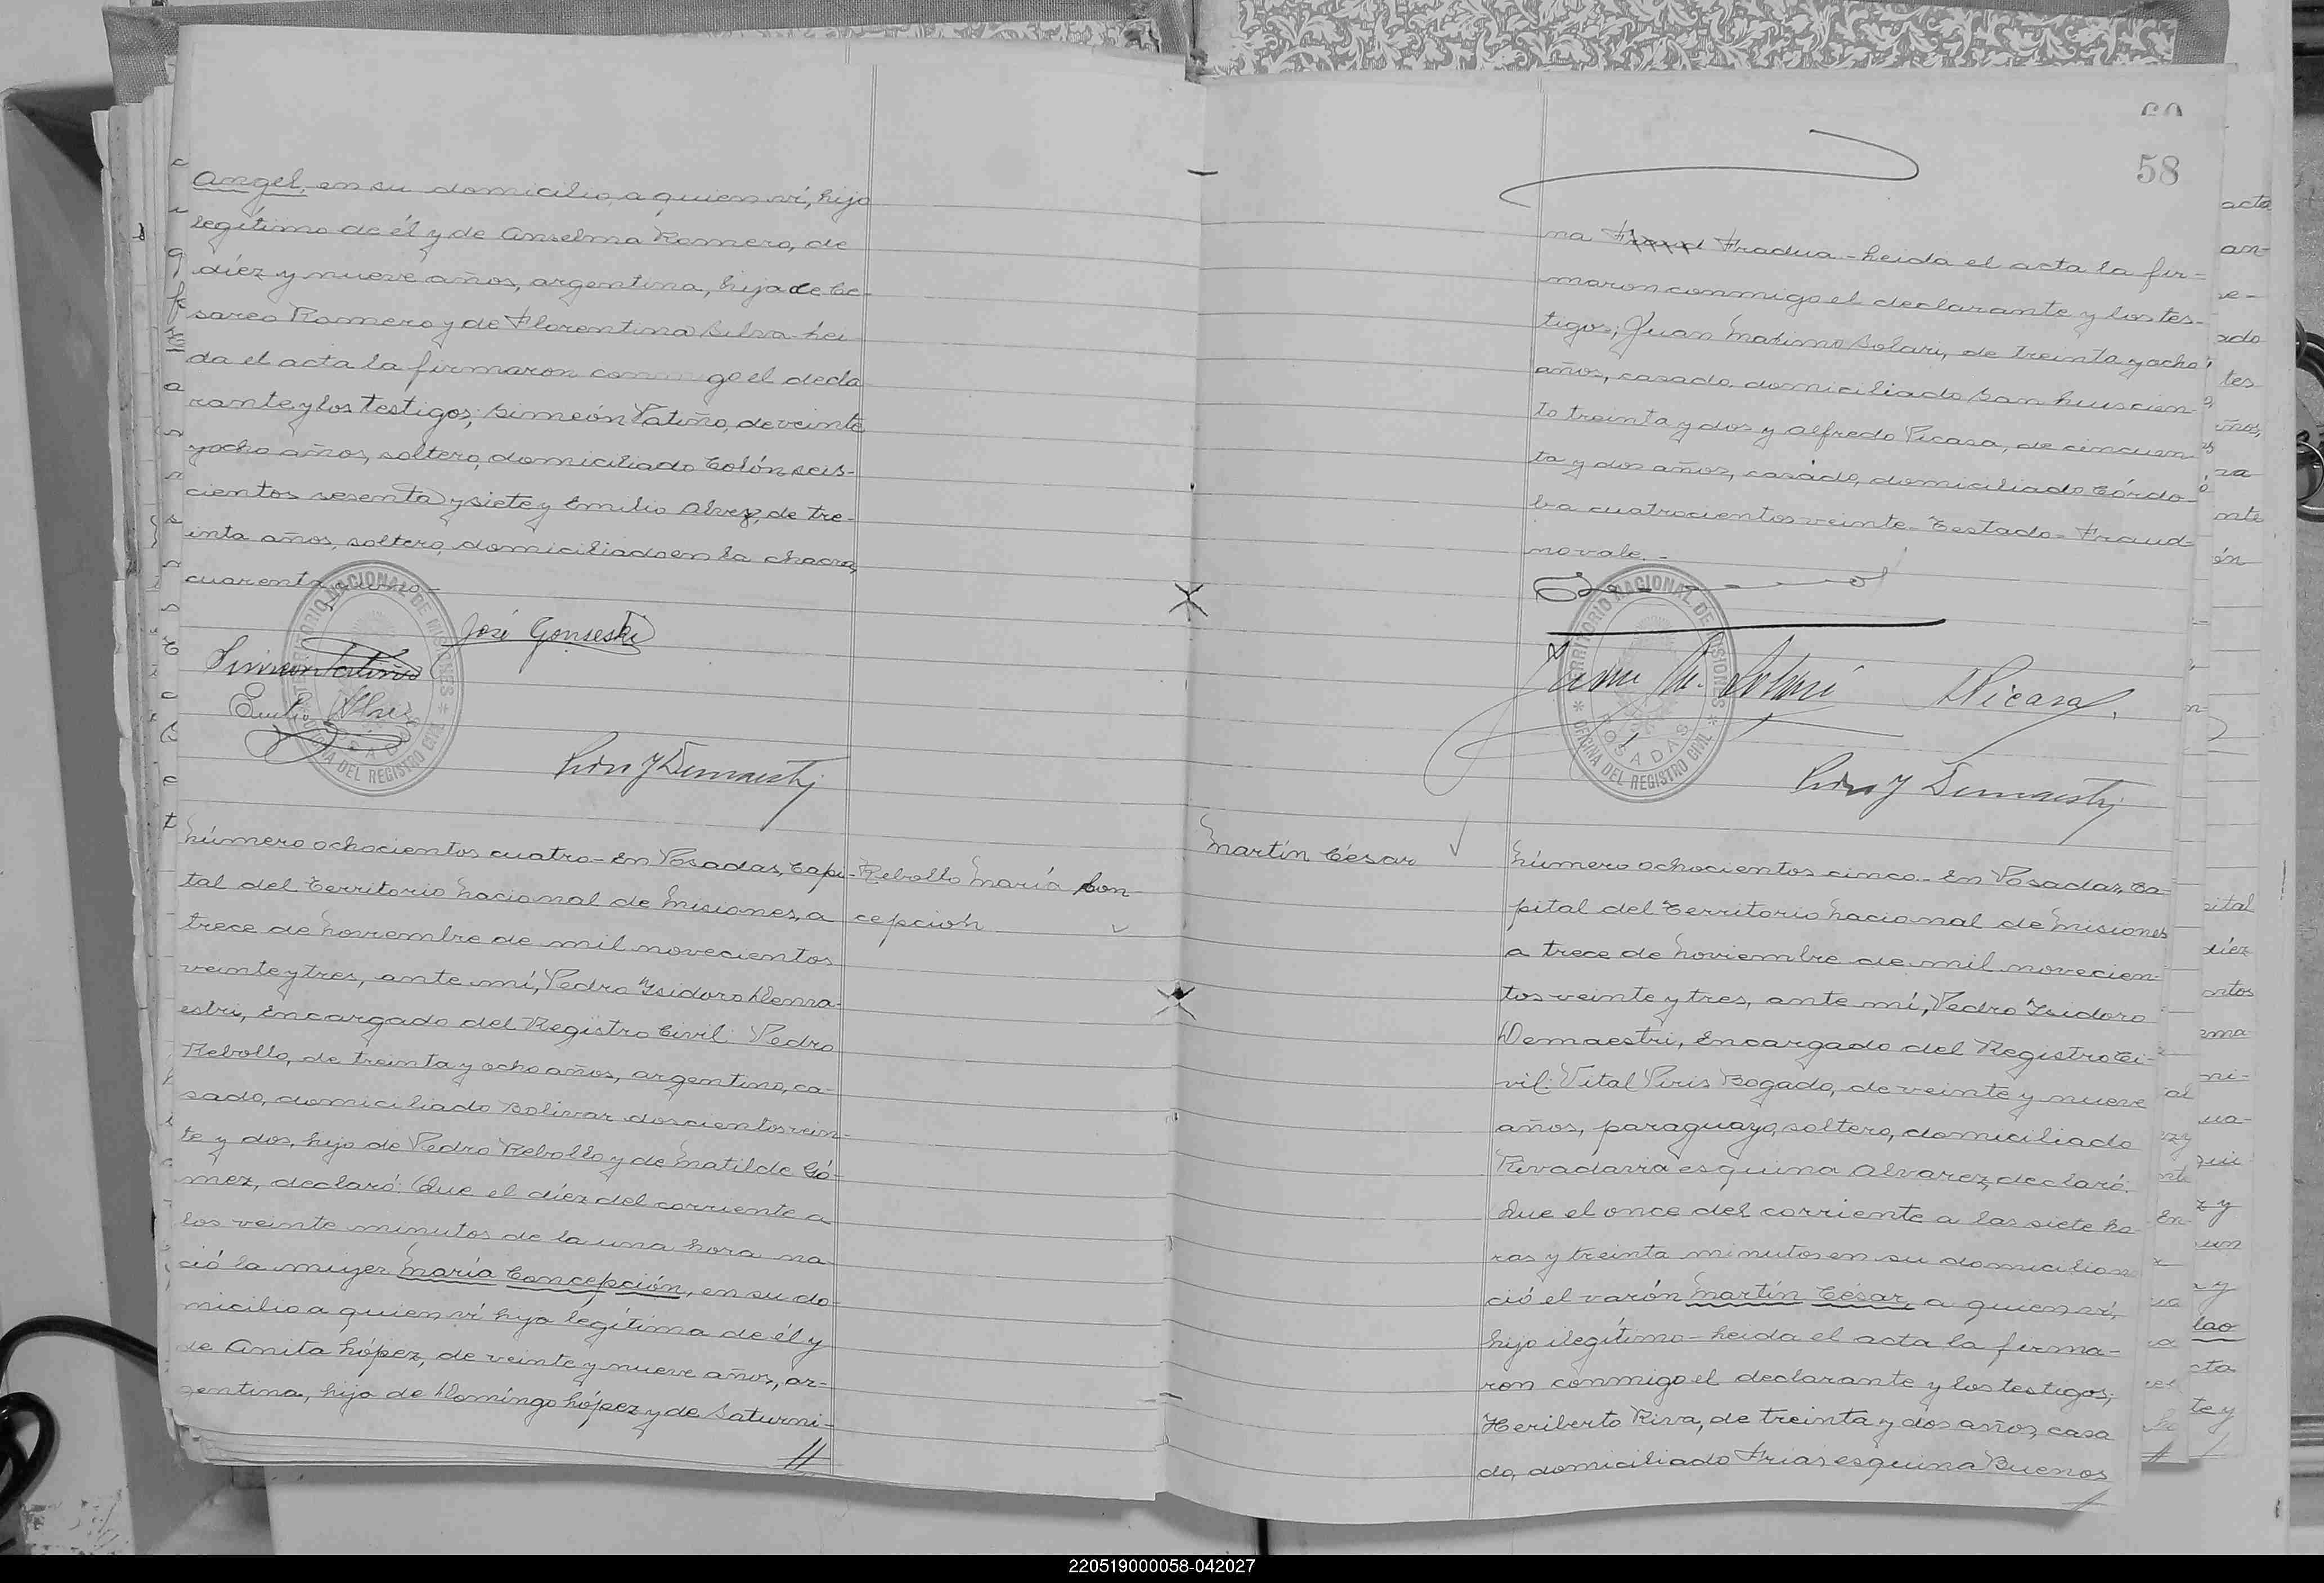 Angel, en su domicilio, a quien ví, hijo
legítimo de él y de Anselma Romero, de
diéz y nueve años, argentina, hija de Ce-
sareo Romero y de Florentina Silva - Leí-
da el acta la firmaron conmigo el decla-
rante y los testigos; Simeón Patiño, de veinte
y ocho años, soltero, domiciliado Colón seis-
cientos sesenta y siete y Emilio Alvez, de tre-
inta años, soltero, domiciliado en la chacra
cuarenta y uno.-
TERRITORIO NACIONAL DE MISIONES
OFICINA DEL REGISTRO CIVIL
POSADAS
José Gonseski
Simeon Patiño
Emilio Alvez
Número ochocientos cuatro - En Posadas, Capi-
tal del Territorio Nacional de Misiones, a
trece de Noviembre de mil novecientos
veinte y tres, ante mí, Pedro Isidoro Dema-
estri, Encargado del Registro Civil: Pedro
Rebollo, de treinta y ocho años, argentino, ca-
sado, domiciliado Bolivar doscientos vein-
te y dos, hijo de Pedro Rebollo y de Matilde Gó-
mez, declaró: Que el diéz del corriente a
los veinte minutos de la una hora na-
ció la mujer María Concepción, en su do-
micilio a quien ví hija legítima de él y
de Anita López, de veinte y nueve años, ar-
gentina, hija de Domíngo López y de Saturni-
//
Rebollo María Con-
cepción
60
58
na Fraud Fradua - Leída el acta la fir-
maron conmigo el declarante y los tes-
tigos; Juan Máximo Solari, de treinta y ocho
años, casado, domiciliado San Luis cien-
to treinta y dos y Alfredo Picasa, de cincuen-
ta y dos años, casado, domiciliado Córdo-
ba cuatrocientos veinte - Testado - Fraud -
no vale.-
TERRITORIO NACIONAL DE MISIONES
OFICINA DEL REGISTRO CIVIL
POSADAS
Juan M. Solari
APicasa
Martín César
Número ochocientos cinco - En Posadas, Ca-
pital del Territorio Nacional de Misiones
a trece de Noviembre de mil novecien-
tos veinte y tres, ante mí, Pedro Isidoro
Demaestri, Encargado del Registro Ci-
vil: Vital Piris Bogado, de veinte y nueve
años, paraguayo, soltero, domiciliado
Rivadavia esquina Alvarez, declaró:
Que el once del corriente a las siete ho-
ras y treinta minutos en su domicilio na
ció el varón Martín César, a quien ví,
hijo ilegítimo - Leída el acta la firma-
ron conmigo el declarante y los testigos;
Heriberto Riva, de treinta y dos años, casa
do, domiciliado Frias esquina Buenos
220519000058-042027